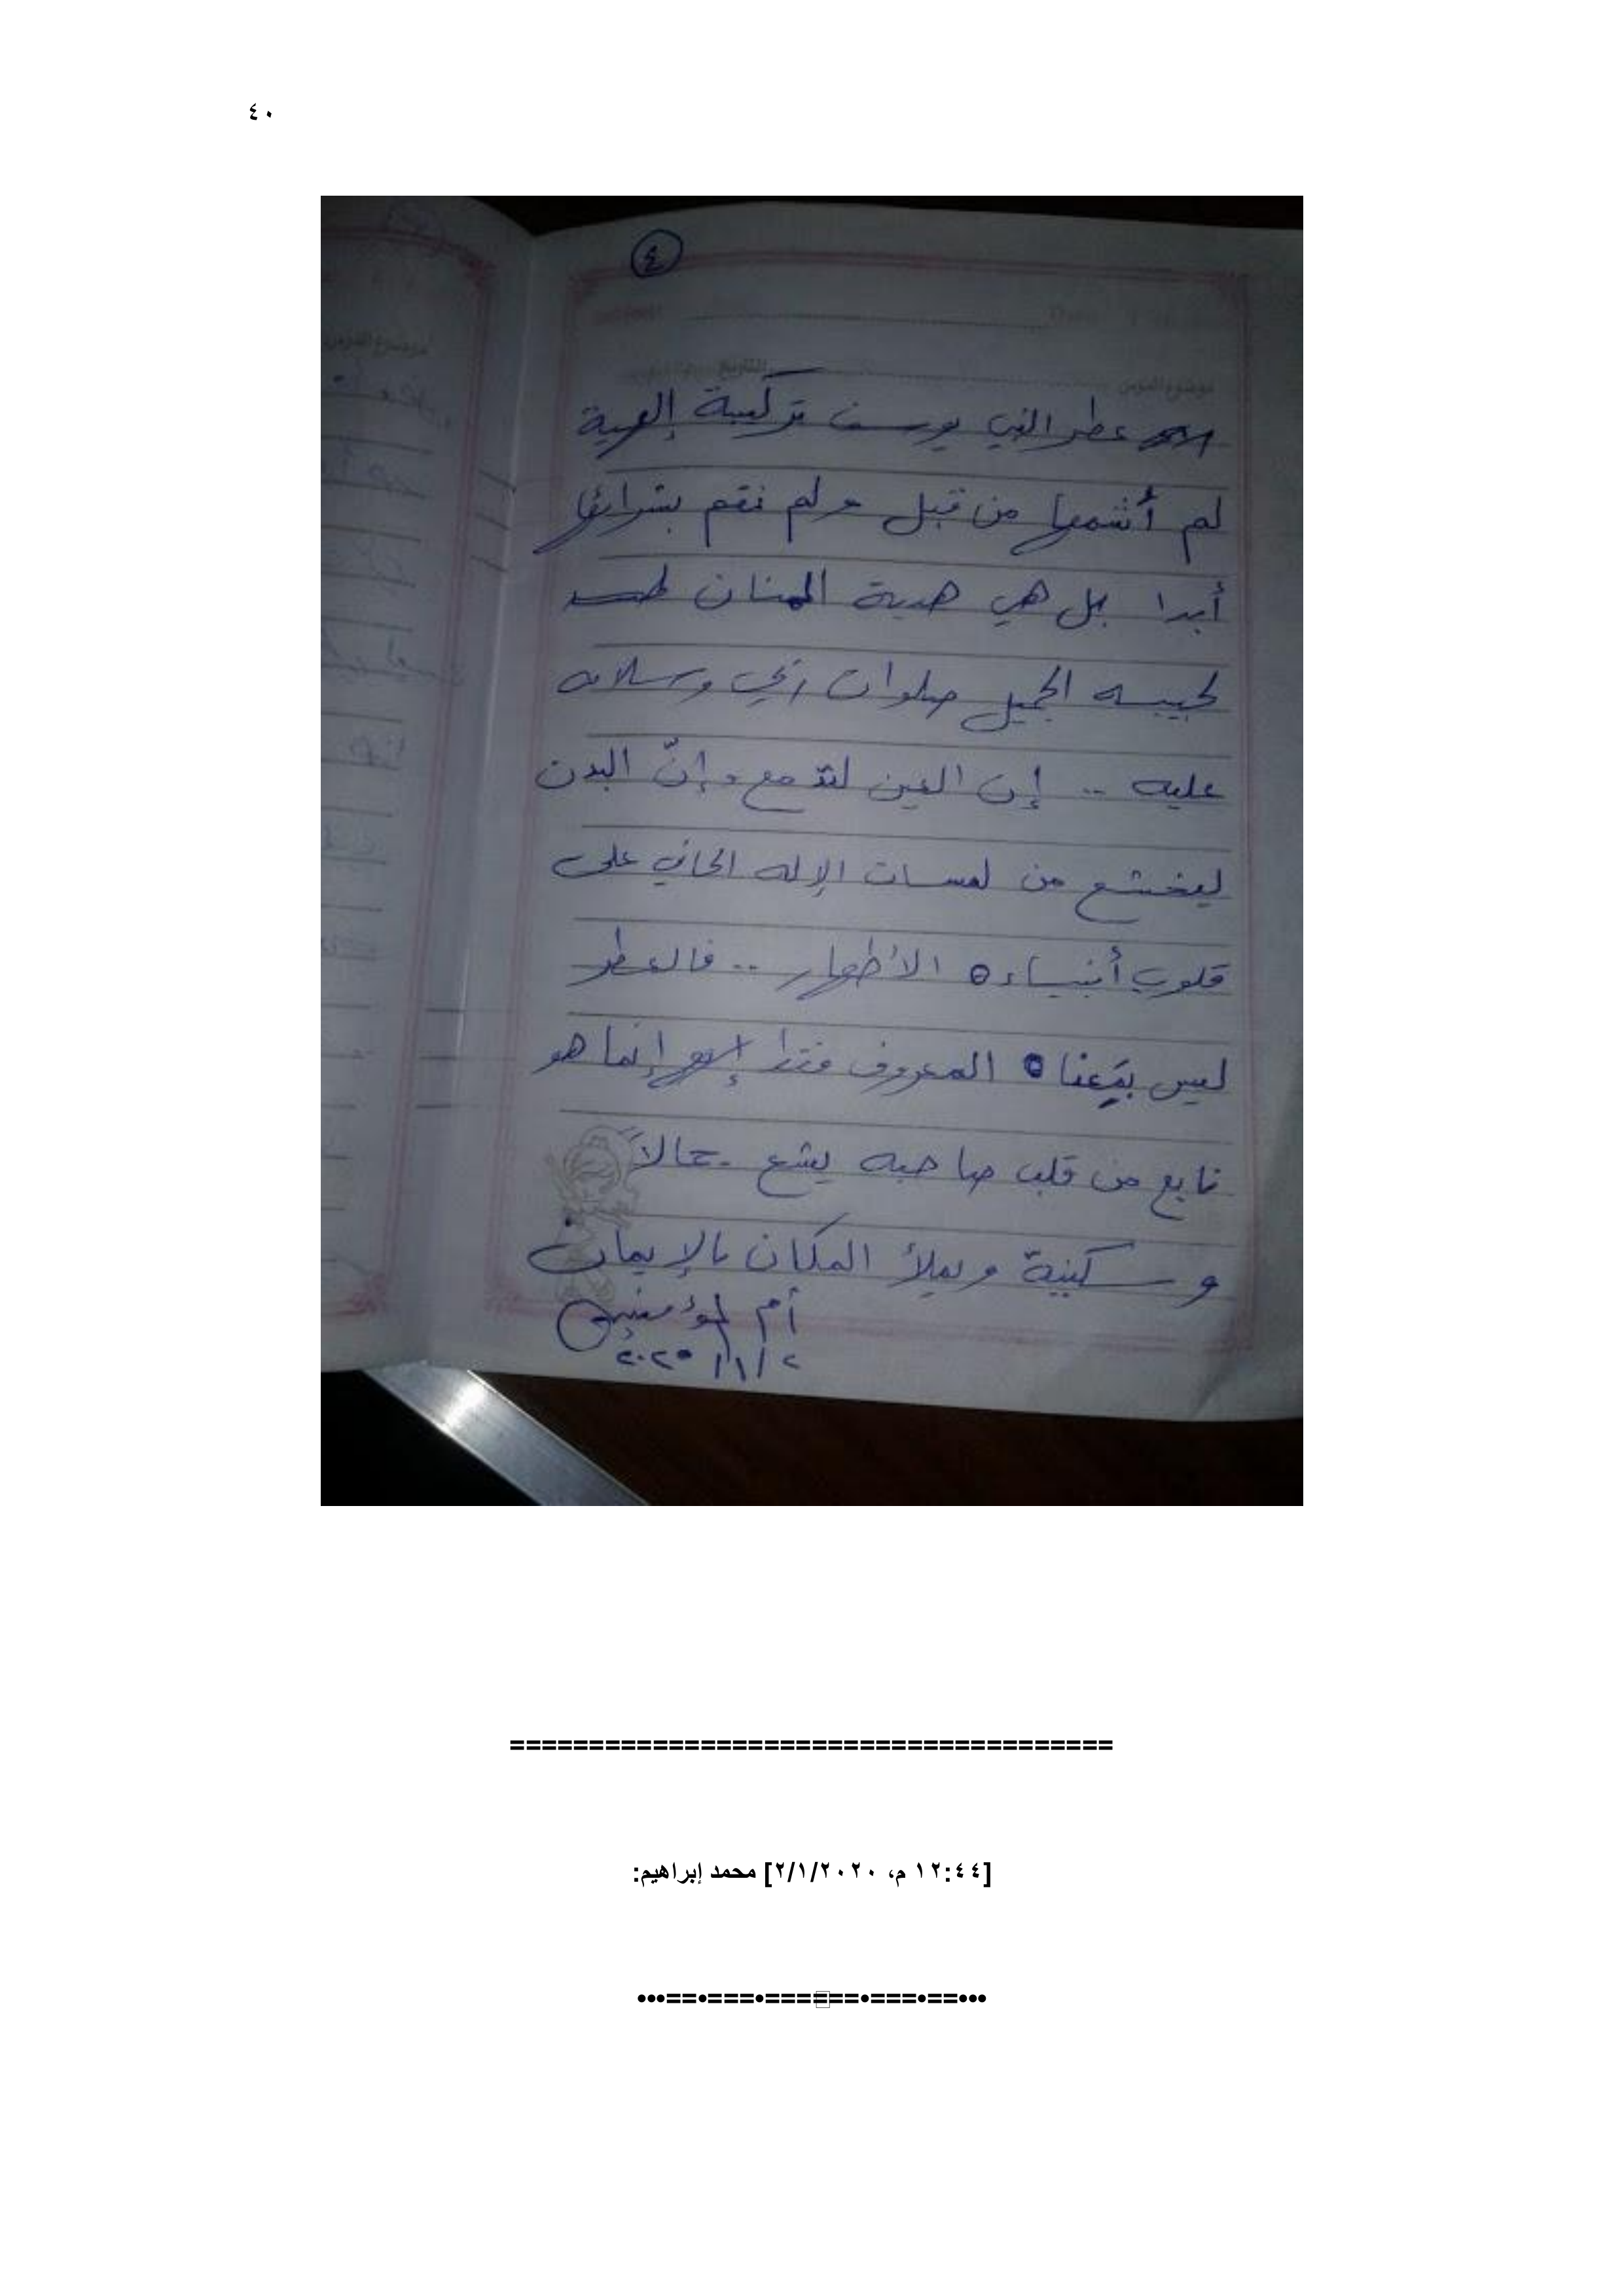 ٤٠
٤
عطر النبي يوسف تركيبة إلهية
لم أشمها من قبل و لم نقم بشرائها
أبدا بل هي هدية المنان
لحبيبه الجميل صلوات ربي وسلامه
عليه .. إن العين لتدمع و إنّ البدن
ليخشع من لمسات الإله الحاني على
قلوب أنبياءه الأطهار .. فالعطر
ليس بمعناه المعروف فقط إنما هو
نابع من قلب صاحبه يشع جمالاً
و سكينة و يملأ المكان بالإيمان
أم المؤمنين
٢/١/٢٠٢٠
===================================
[١٢:٤٤ م، ٢/١/٢٠٢٠] محمد إبراهيم:
•••==•===•======•===•==•••